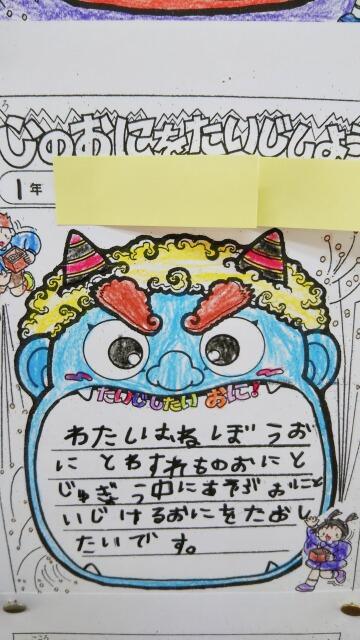 じのおにをたいじしよう
1年
たいじしたい おに!
わたしはねぼうお
にとわすれものおにと
じゅぎょう中にあそぶおにと
いじけるおにをたおし
たいです。
こころ